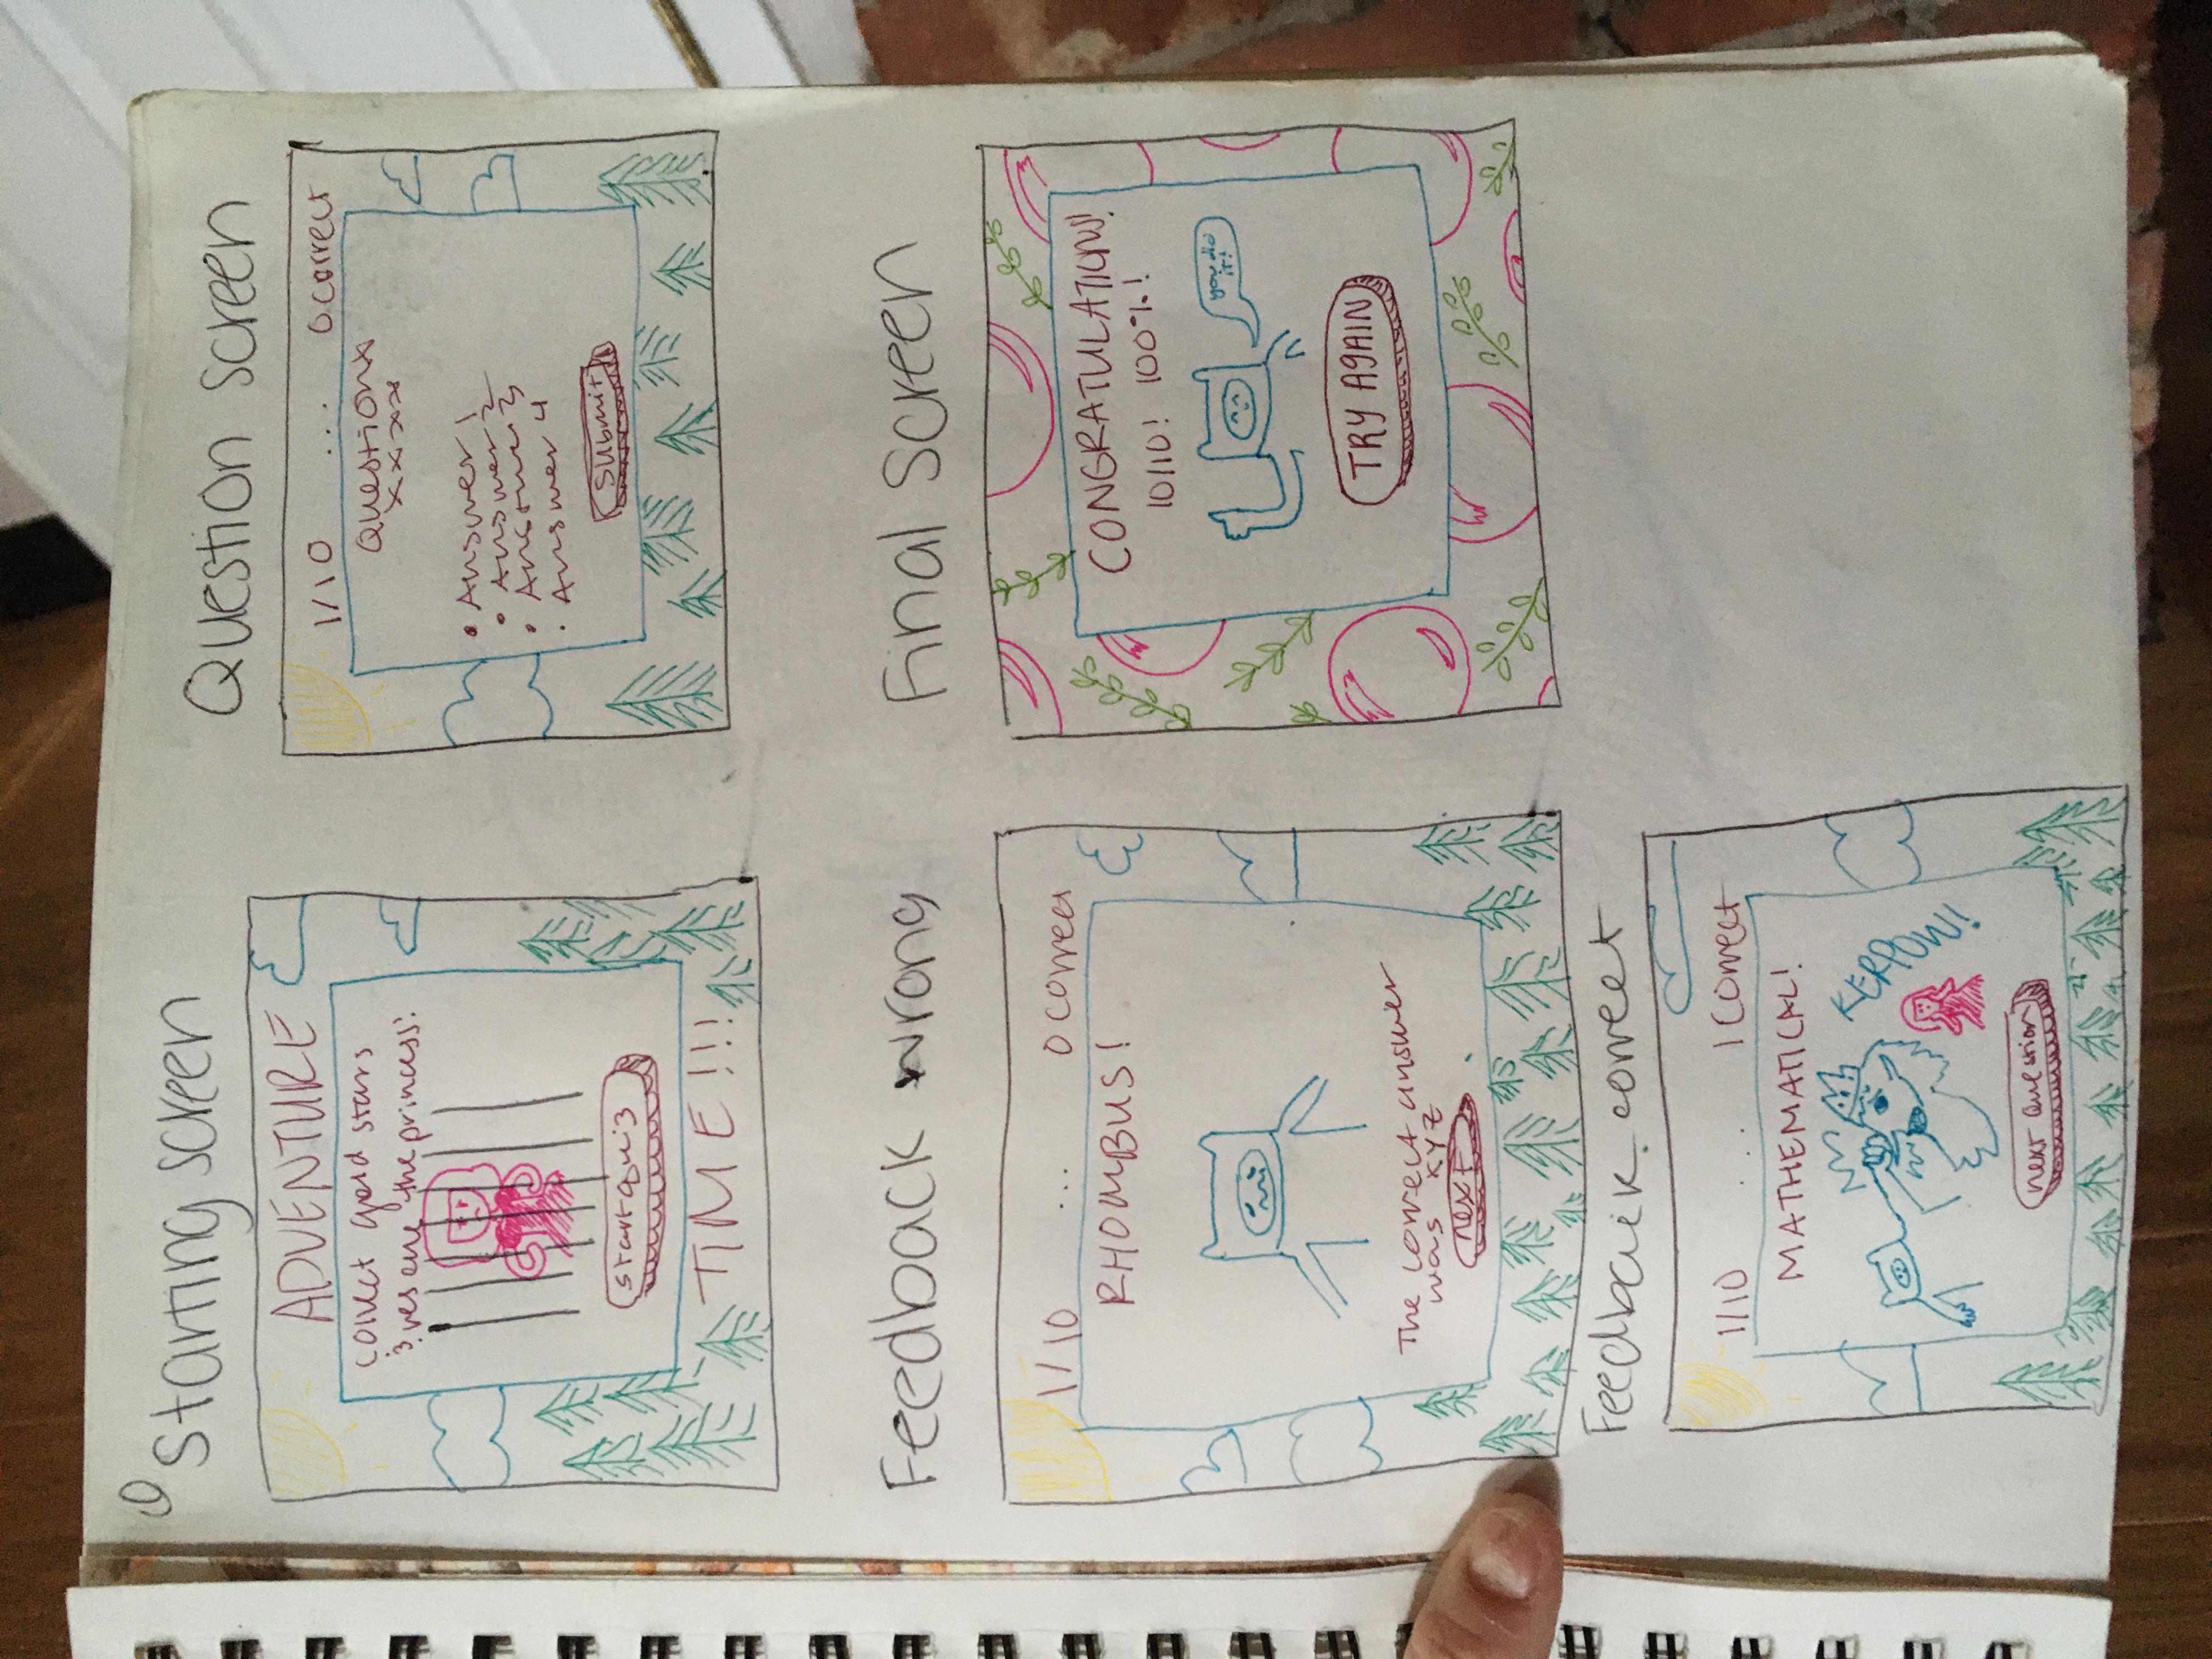 Starting screen
ADVENTURE
collect gold stars
& rescue the princess!
start quiz
TIME!!!
Question screen
1/10 ... 0 correct
Question
xxxx
• Answer 1
• Answer 2
• Answer 3
• Answer 4
submit
Feedback wrong
1/10 ... 0 correct
RHOMBUS!
The correct answer
was XYZ
next
Final Screen
CONGRATULATIONS!
10/10! 100%!
you did
it!
TRY AGAIN
Feedback correct
1/10 ... 1 correct
MATHEMATICAL!
KERPOW!
next question